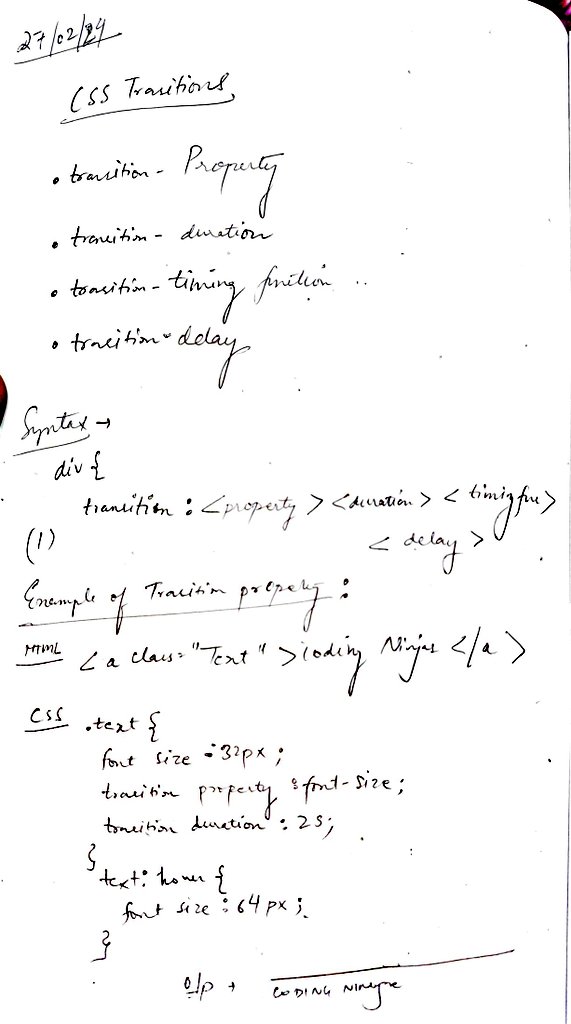 27/02/24
CSS Transitions
• transition - Property
• transition - duration
• transition - timing function ..
• transition - delay
Syntax →
div {
transition : <property> <duration> <timing fn>
<delay>
(1)
Example of Transition property :
HTML < a class="Text" > Coding Ninjas </a>
CSS .text {
font size : 32px ;
transition property : font-size ;
transition duration : 2s;
}
text: hover {
font size : 64px ;
}
o/p → CODING NINJAS